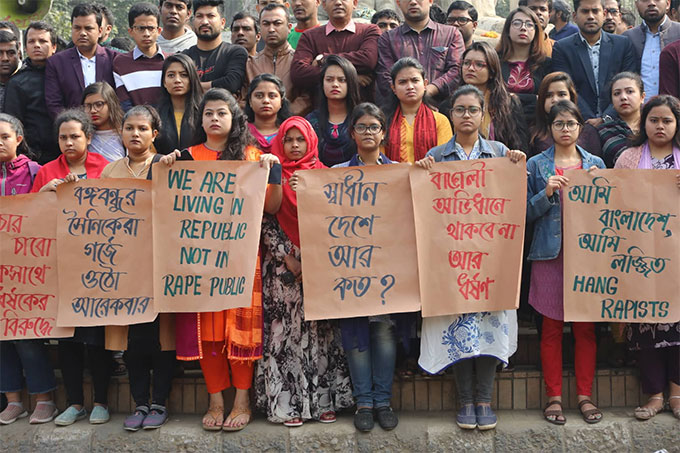 কসাথে
র্ষকের
বিরুদ্ধে
বঙ্গবন্ধুর
সৈনিকেরা
গর্জে
ওঠো
আরেকবার
WE ARE
LIVING IN
REPUBLIC
NOT IN
RAPE PUBLIC
স্বাধীন
দেশে
আর
কত?
অভিধানে
থাকবে না
আর
ধর্ষণ
আমি
বাংলাদেশ,
আমি লজ্জিত
HANG
RAPISTS